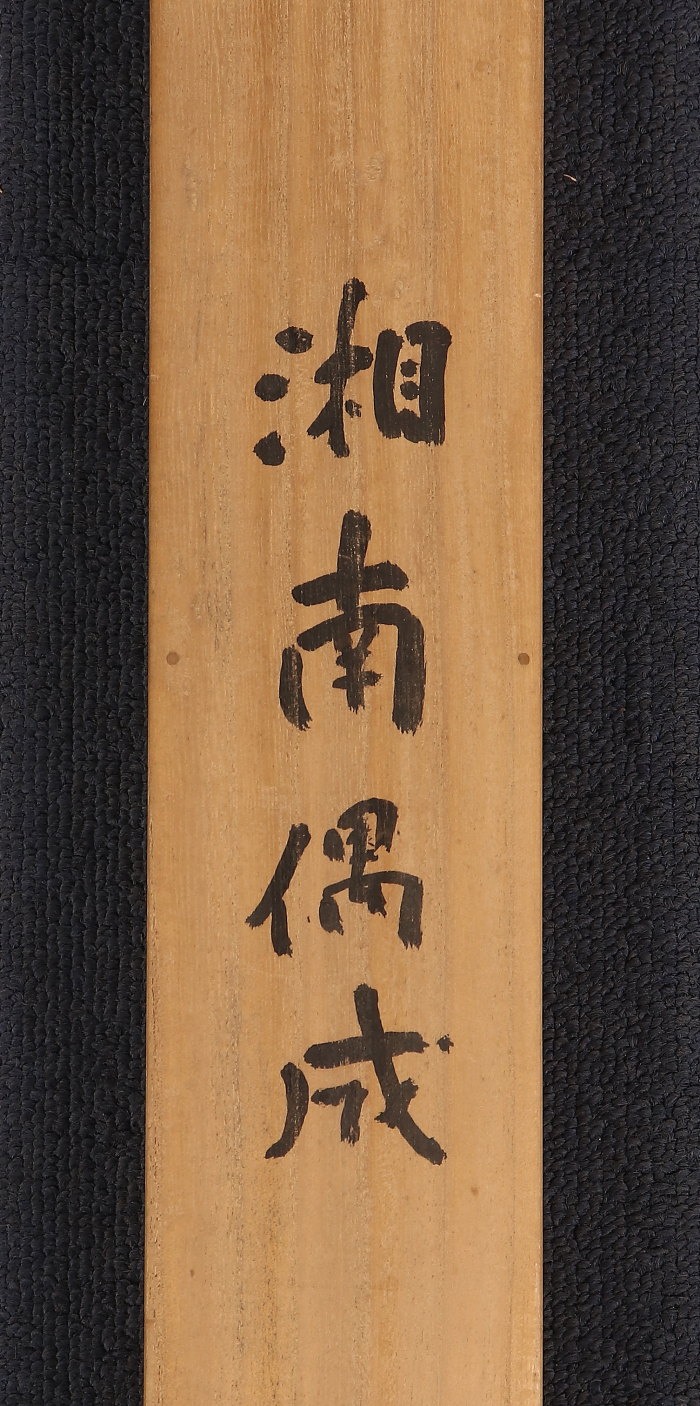 湘南偶成